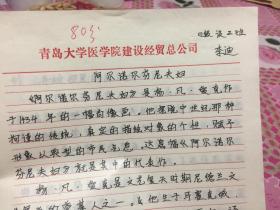 80分
级 设二班
李迪
青岛大学医学院建设经贸总公司
阿尔诺尔芬尼夫妇
《阿尔诺尔芬尼夫妇》是杨·凡·爱克作
于1434年的一幅肖像画。他摆脱中世纪那种
拘谨的传统，真实的描绘对象的个性，赋予
形象以典型的市民气息。这幅阿尔诺尔
芬尼夫妇就是其中的代表作。
杨·凡·爱克是文艺复兴时期尼德兰文